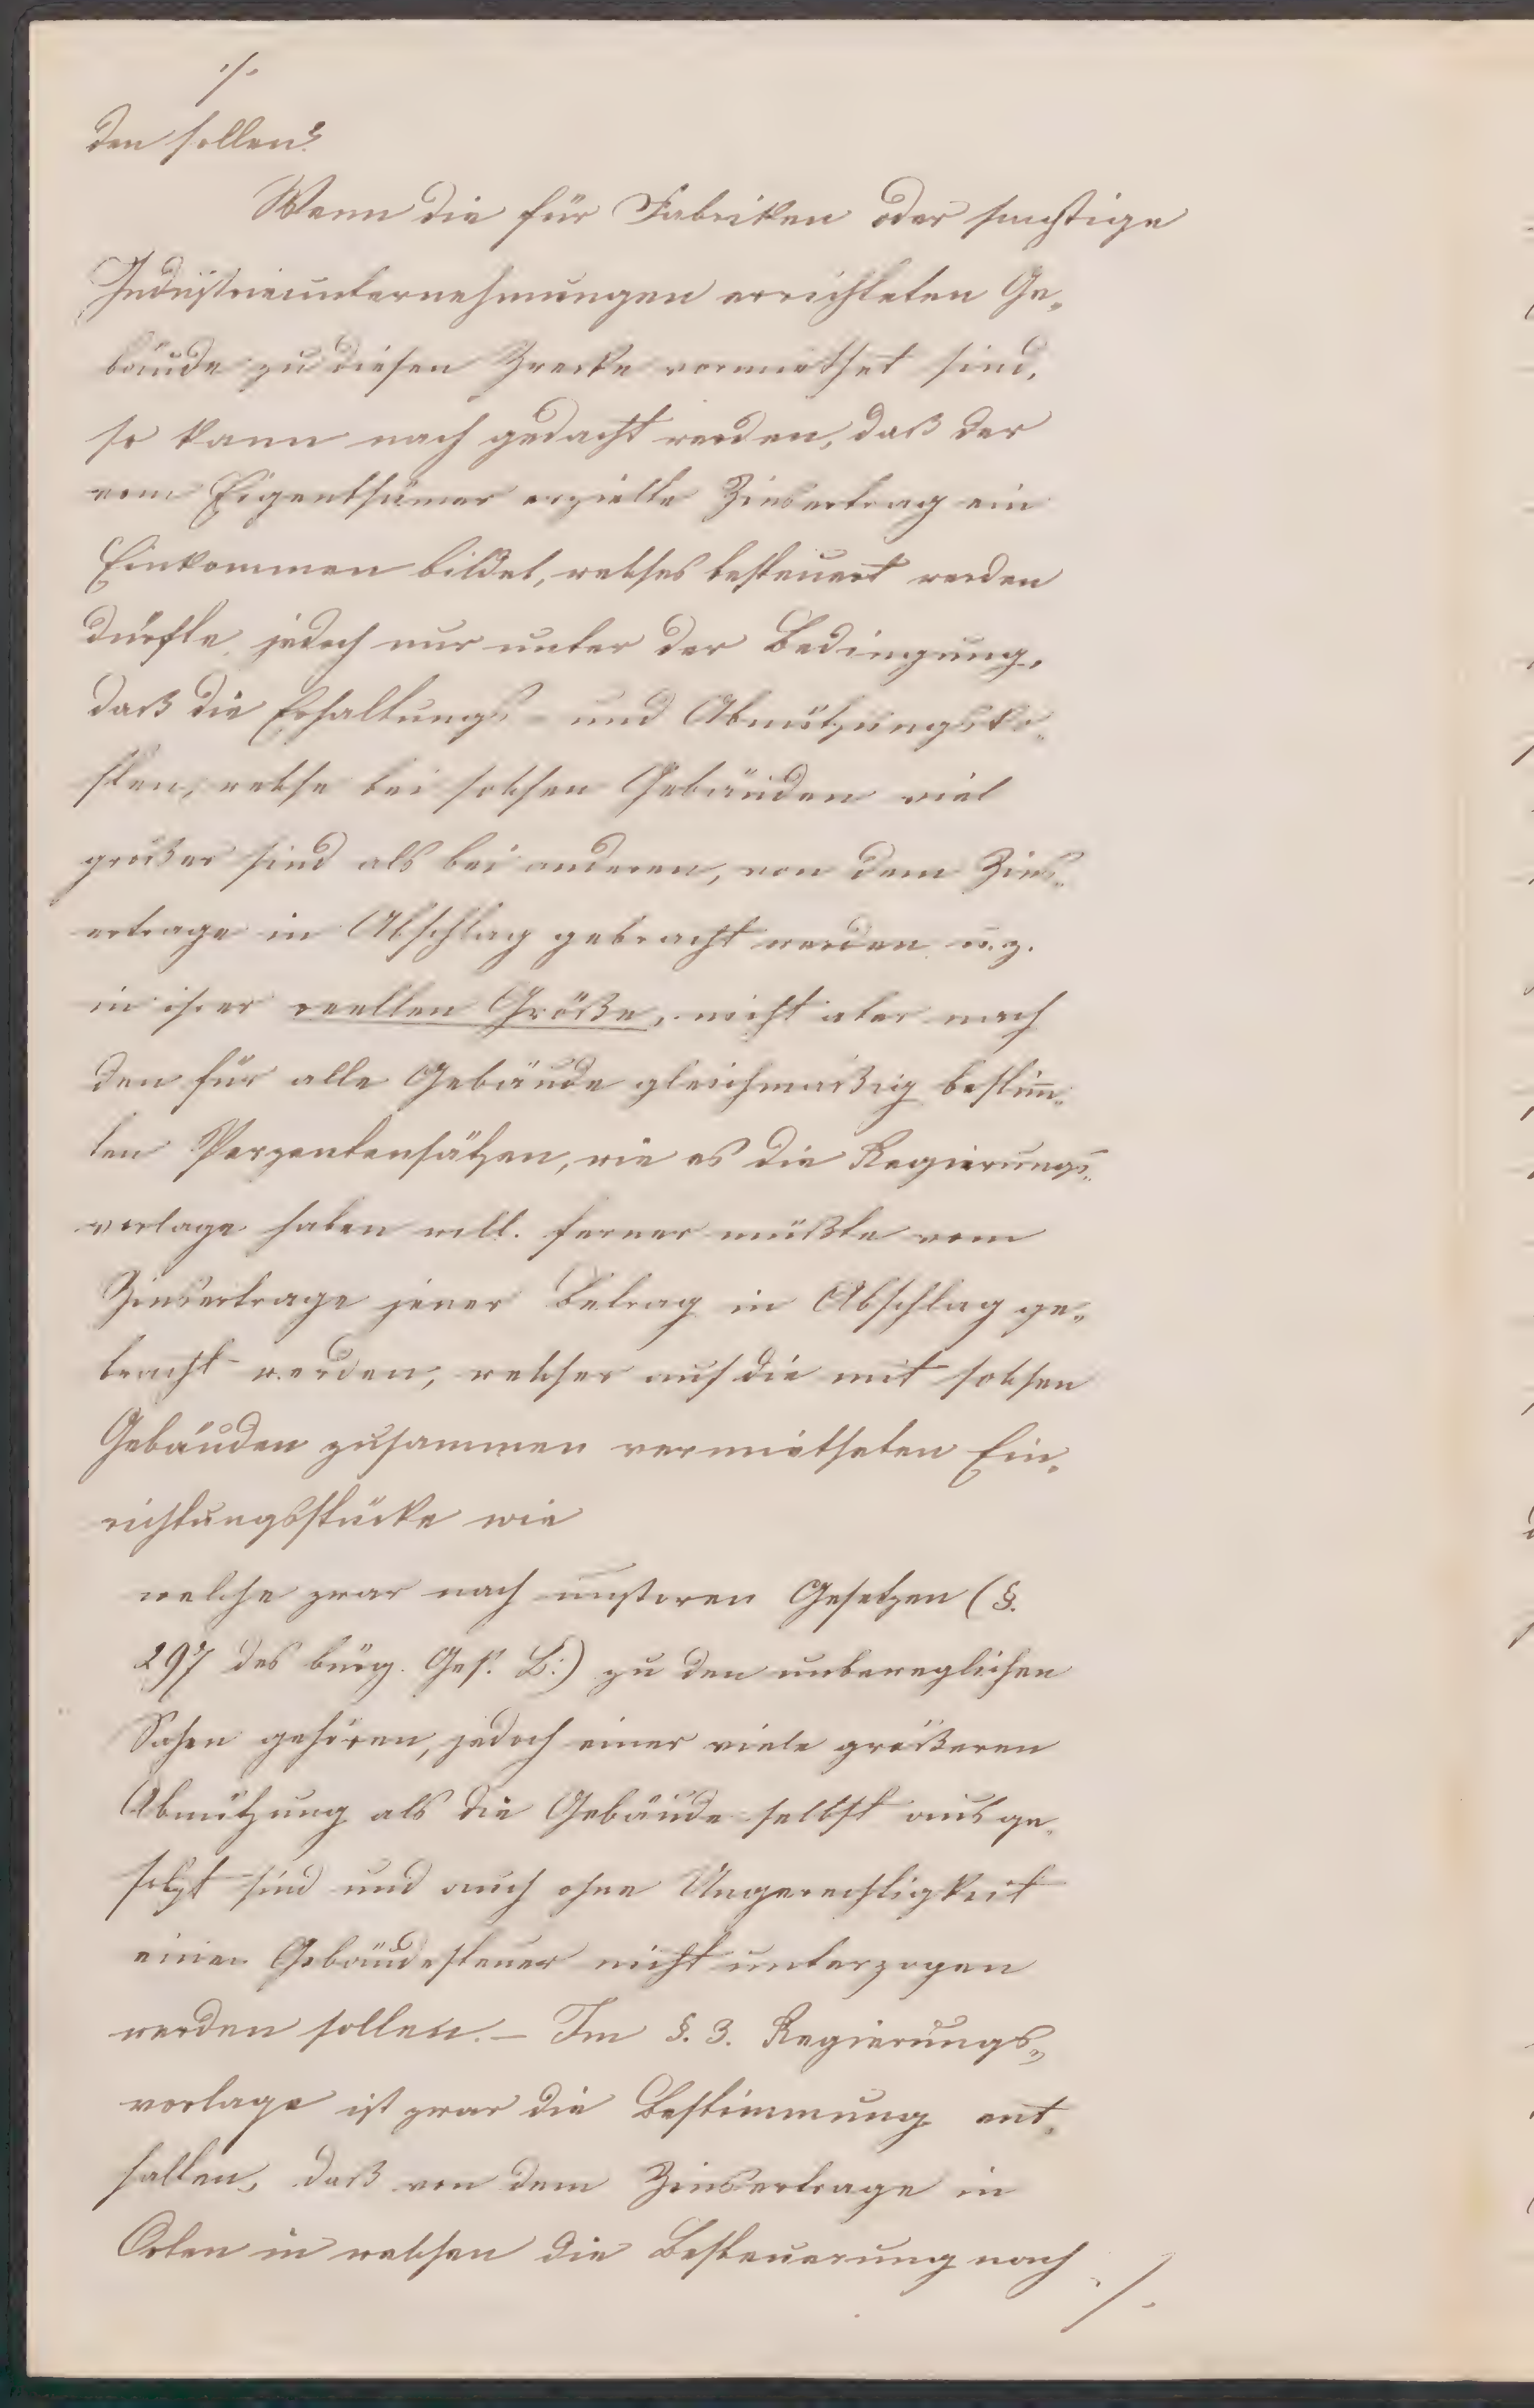 ./.
den sollen?
Wenn die für Fabriken oder sonstige
Industrieunternehmungen errichteten Ge-
bäude zu diesen Zwecke vermiethet sind,
so kann noch gedacht werden, daß der
vom Eigenthümer erzielte Zinsertrag ein
Einkommen bildet, welches besteuert werden
dürfte, jedoch nur unter der Bedingung,
daß die Erhaltungs- und Abnützungsko-
sten, welche bei solchen Gebäuden viel
größer sind als bei anderen, von dem Zins-
ertrage in Abschlag gebracht werden u. z.
in ihrer reellen Größe, nicht aber nach
den für alle Gebäude gleichmäßig bestim̄-
ten Perzentensätzen, wie es die Regierungs-
vorlage haben will. ferner müßte vom
Zinsertrage jener Betrag in Abschlag ge-
bracht werden, welcher auf die mit solchen
Gebäuden zusammen vermietheten Ein-
richtungsstücke wie
welche zwar nach unseren Gesetzen (§.
297 des bürg. Ges. B:) zu den unbeweglichen
Sachen gehören, jedoch einer viele größeren
Abnützung als die Gebäude selbst ausge-
setzt sind und auch ohne Ungerechtigkeit
einer Gebäudesteuer nicht unterzogen
werden sollen. – Im §. 3. Regierungs-
vorlage ist zwar die Bestimmung ent-
halten, daß von dem Zinsertrage in
Orten in welchen die Besteuerung nach
./.